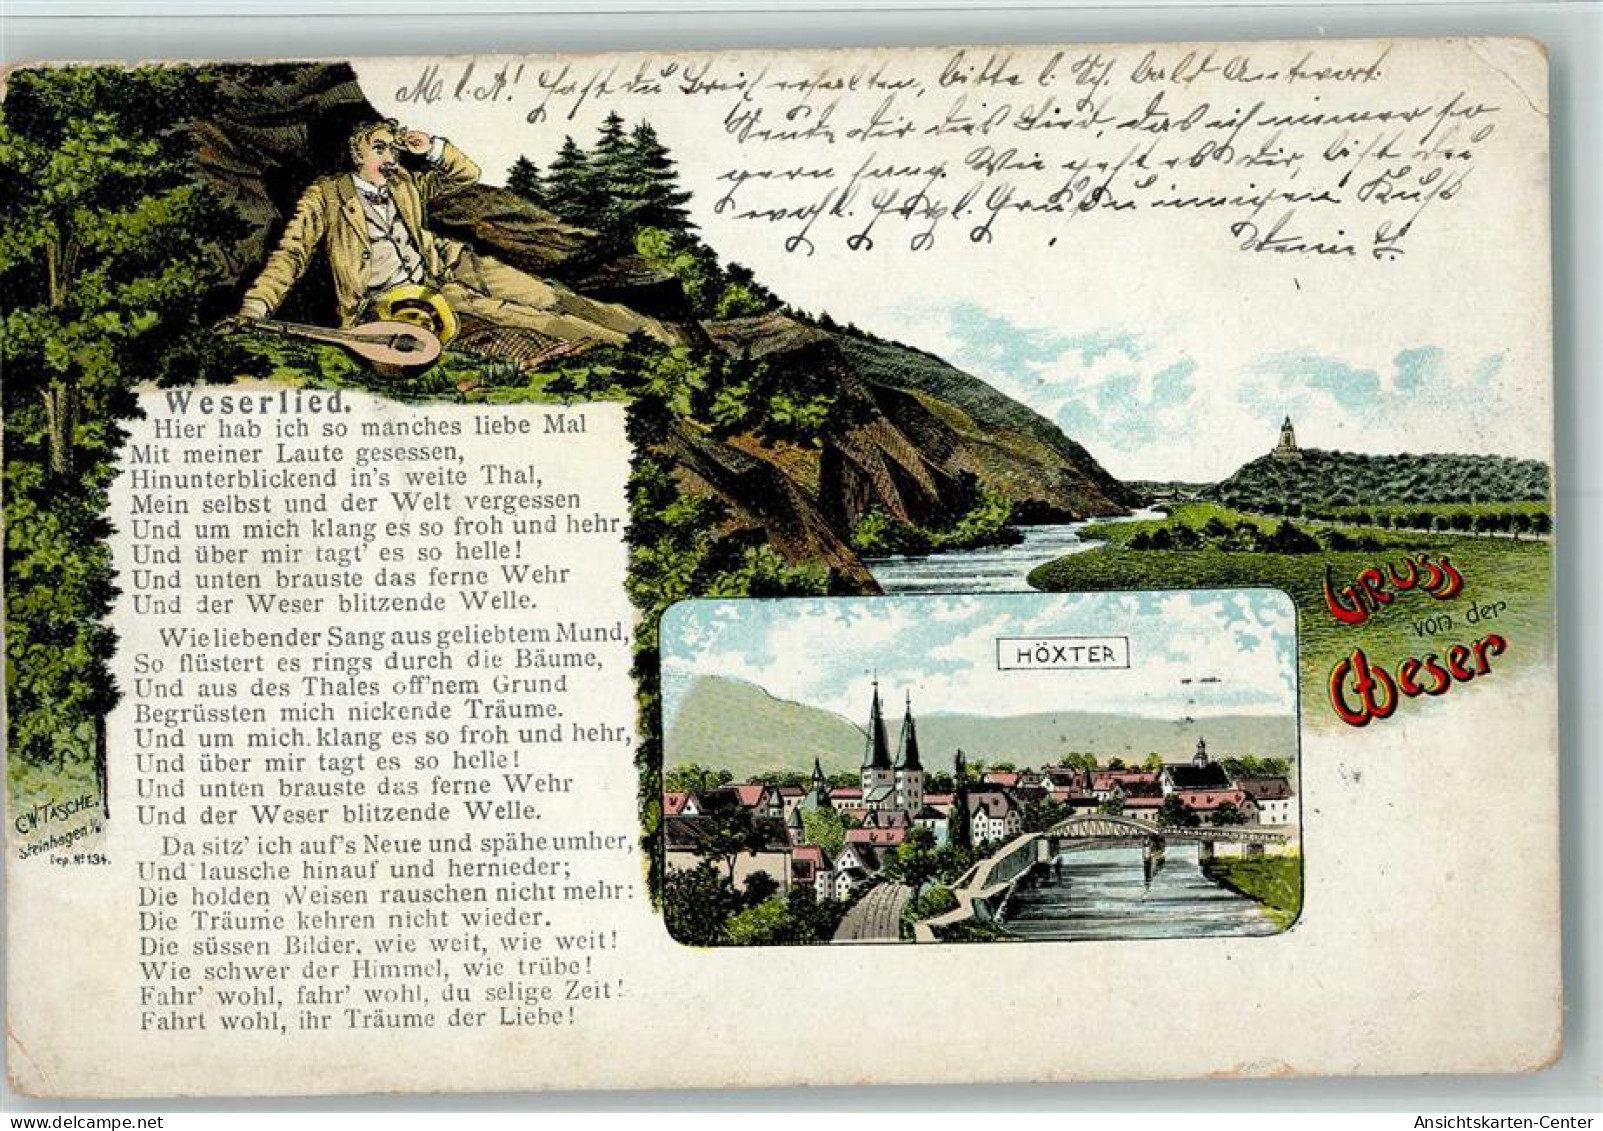 M. l. A! Hast du Brief erhalten, bitte l. Sch. bald Antwort.
Sende Dir das Lied, das ich immer so
gern sang. Wie geht es Dir, bist du
wohl. Herzl. Gruß u innigen Kuß
Weserlied.
Hier hab ich so manches liebe Mal
Mit meiner Laute gesessen,
Hinunterblickend in's weite Thal,
Mein selbst und der Welt vergessen
Und um mich klang es so froh und hehr,
Und über mir tagt' es so helle!
Und unten brauste das ferne Wehr
Und der Weser blitzende Welle.
Wie liebender Sang aus geliebtem Mund,
So flüstert es rings durch die Bäume,
Und aus des Thales off'nem Grund
Begrüssten mich nickende Träume.
Und um mich klang es so froh und hehr,
Und über mir tagt es so helle!
Und unten brauste das ferne Wehr
Und der Weser blitzende Welle.
Da sitz' ich auf's Neue und spähe umher,
Und lausche hinauf und hernieder;
Die holden Weisen rauschen nicht mehr:
Die Träume kehren nicht wieder.
Die süssen Bilder, wie weit, wie weit!
Wie schwer der Himmel, wie trübe!
Fahr' wohl, fahr' wohl, du selige Zeit!
Fahrt wohl, ihr Träume der Liebe!
Gruss
von der
Weser
HÖXTER
C.W. TASCHE.
Steinhagen i/W
Dep. No 134.
Ansichtskarten-Center